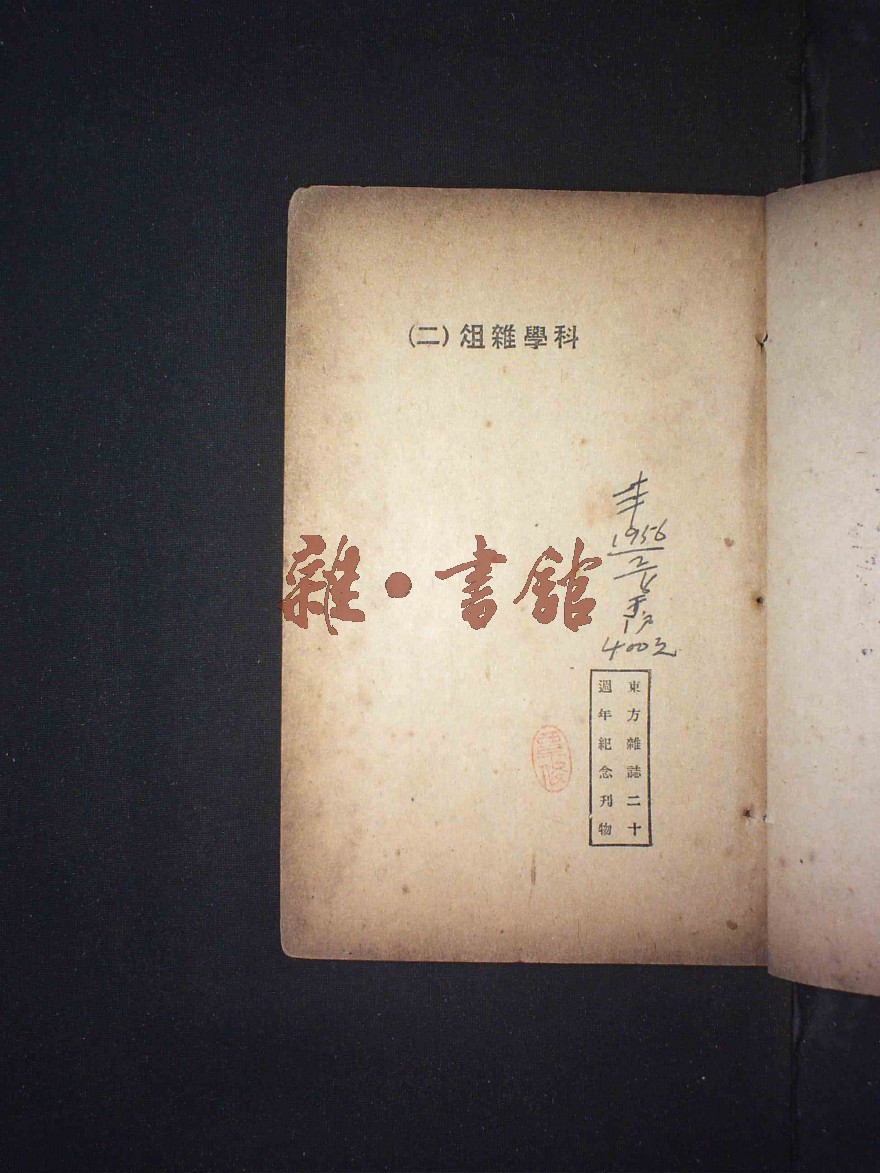 科學雜俎(二)
1956
400元
東方雜誌二十
週年紀念刊物
雜·書館